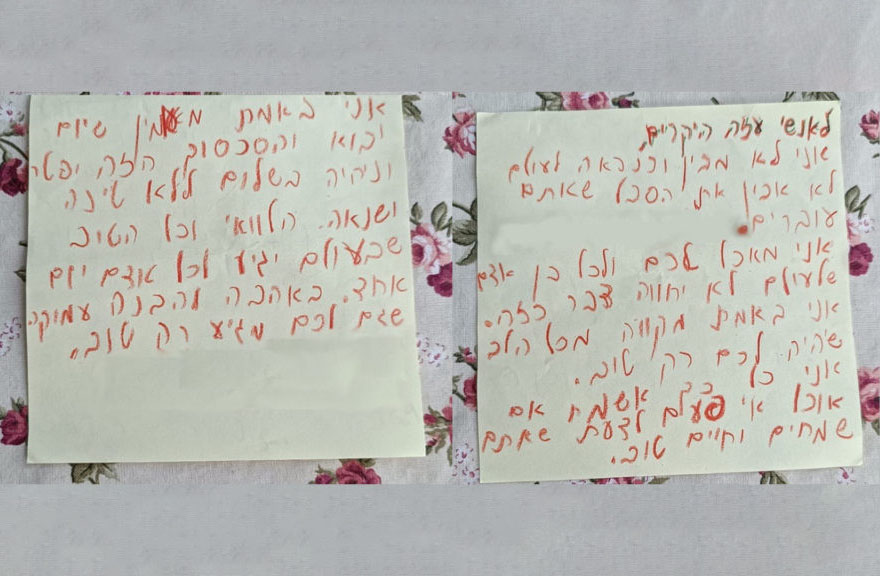 לאנשי עזה היקרים,
אני לא מבין וכנראה לעולם
לא אבין את הסבל שאתם
עוברים.
אני מאכל לכם ולכל בן אדם
שלעולם לא יחווה דבר כזה.
אני באמת מקווה מכל הלב
שיהיה לכם רק טוב.
אני כל כך אשמח אם
אוכל אי פעם לדעת שאתם
שמחים וחיים טוב.
אני באמת מאמין שיום
יבוא והסכסוך הזה יפטר
ונחיה בשלום ללא טינה
ושנאה. הלוואי וכל הטוב
שבעולם יגיע לכל אדם יום
אחד. באהבה והבנה עמוקה
שגם לכם מגיע רק טוב.